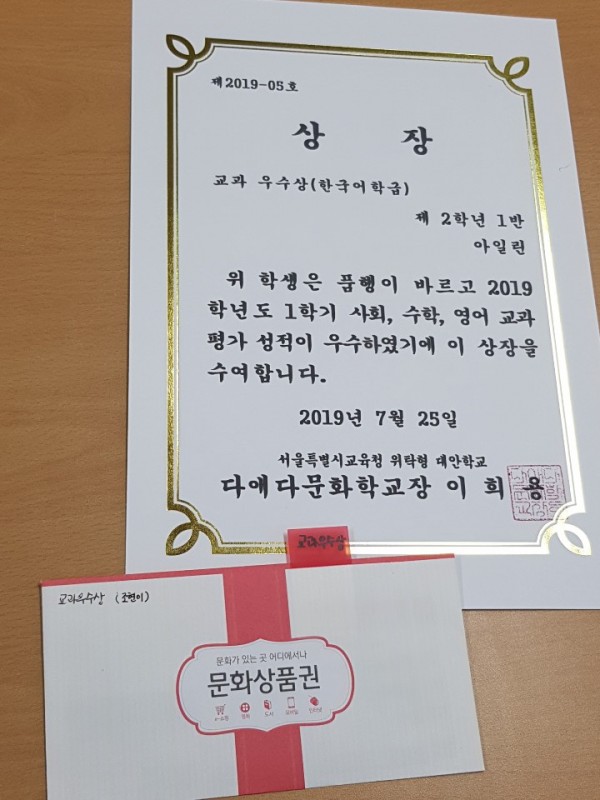 제2019-05호
상 장
교과 우수상(한국어학급)
제 2학년 1반
아일린
위 학생은 품행이 바르고 2019
학년도 1학기 사회, 수학, 영어 교과
평가 성적이 우수하였기에 이 상장을
수여합니다.
2019년 7월 25일
서울특별시교육청 위탁형 대안학교
다애다문화학교장 이 희 용
교과우수상
교과우수상 (조현이)
문화가 있는 곳 어디에서나
문화상품권
도서